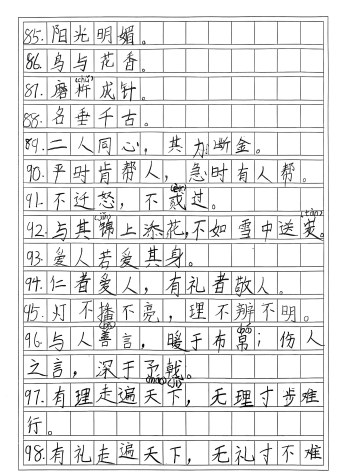 85.阳光明媚。
86.鸟与花香。
87.磨杵成针。
88.名垂千古。
89.二人同心，其力断金。
90.平时肯帮人，急时有人帮。
91.不迁怒，不贰过。
92.与其锦上添花，不如雪中送炭。
93.爱人若爱其身。
94.仁者爱人，有礼者敬人。
95.灯不播不亮，理不辨不明。
96.与人善言，暖于布帛；伤人
之言，深于予戟。
97.有理走遍天下，无理寸步难
行。
98.有礼走遍天下，无礼寸不难